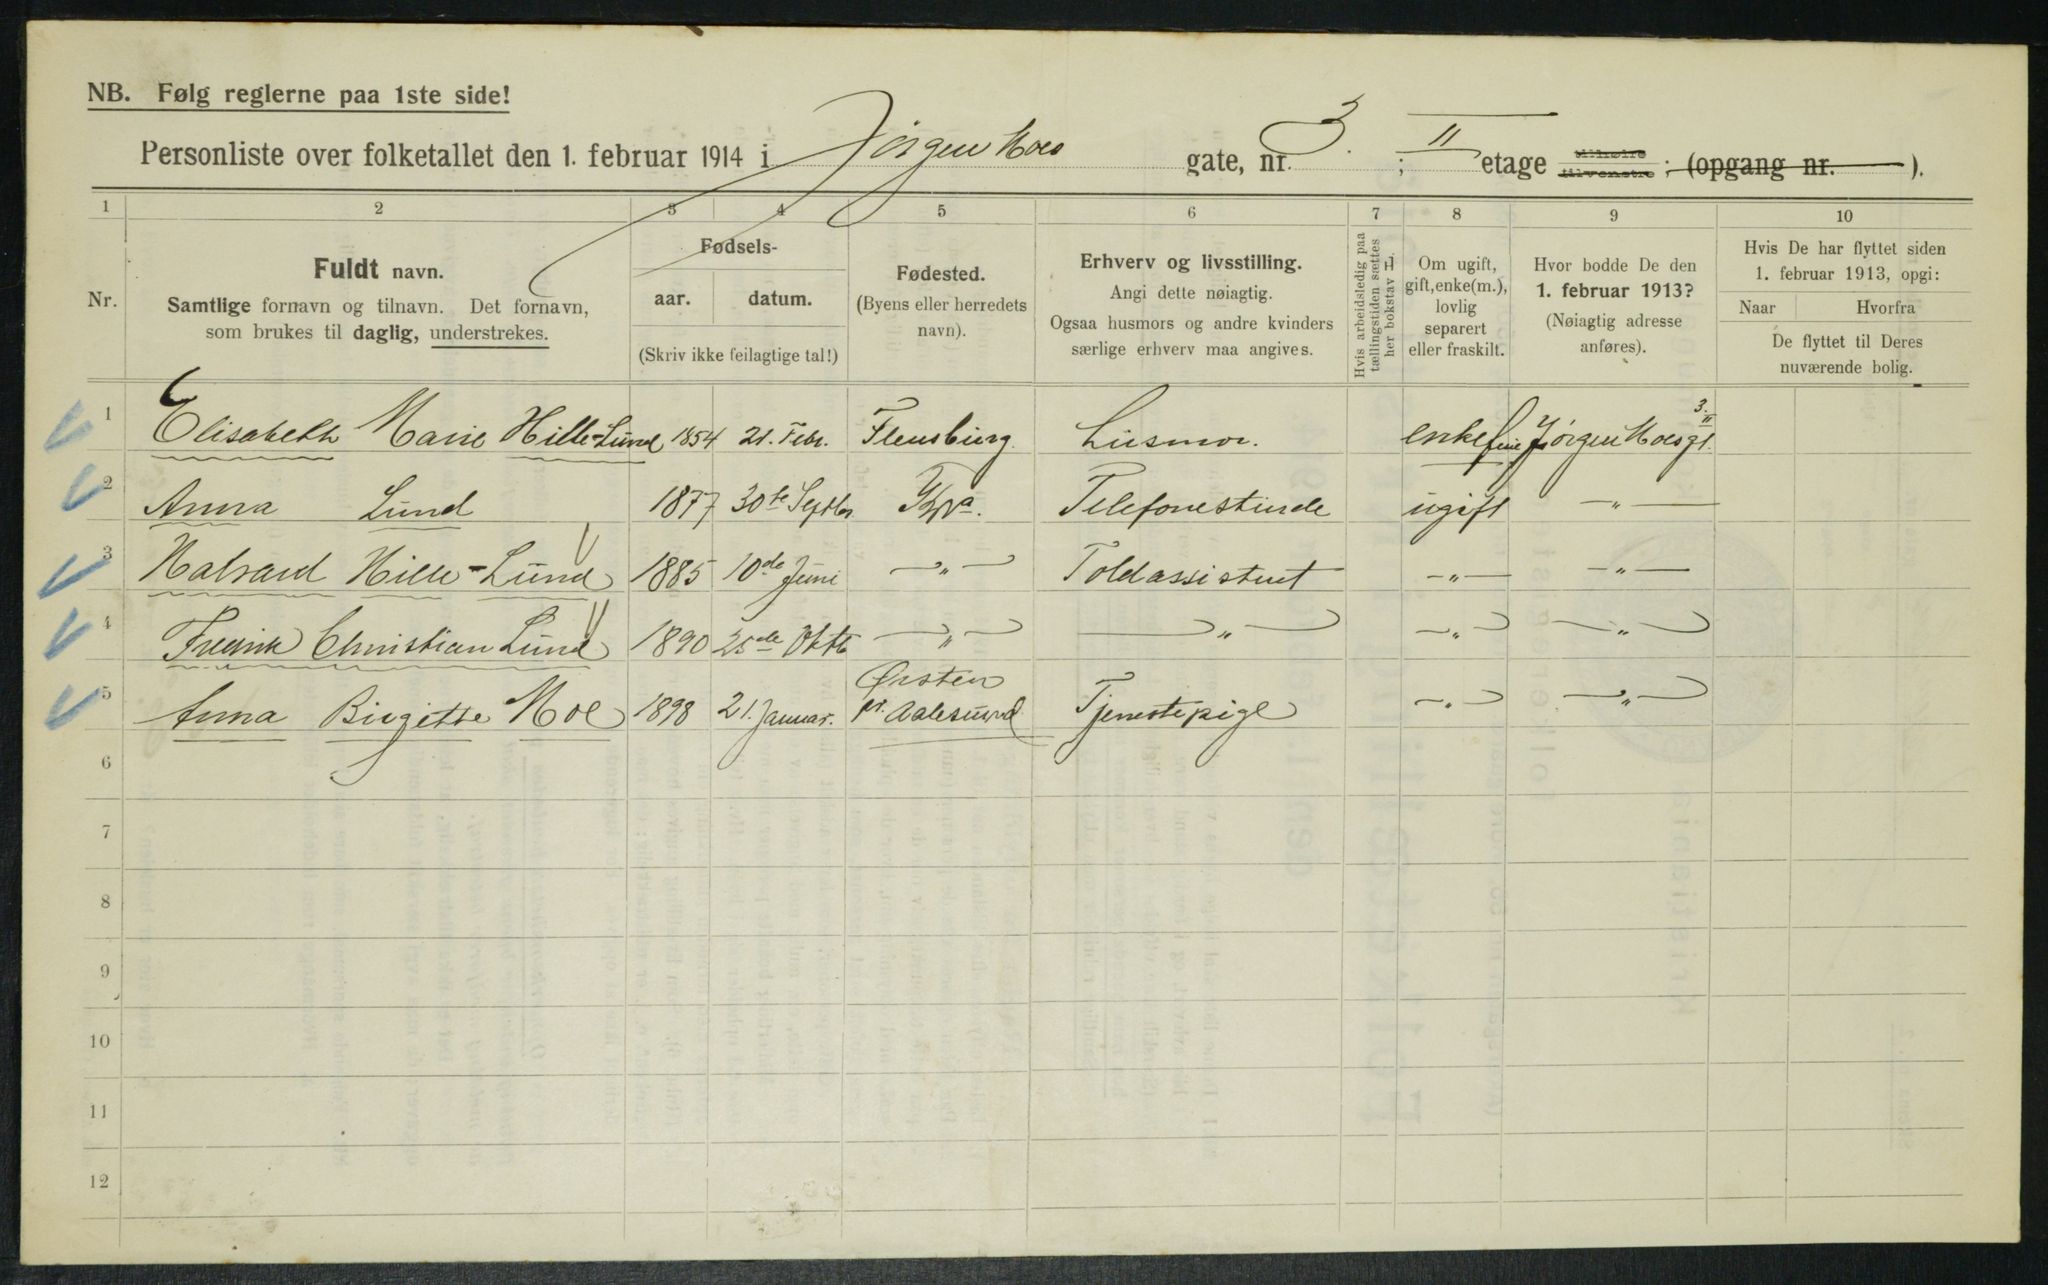 NB. Følg reglerne paa 1ste side!
Personliste over folketallet den 1. februar 1914 i Jörgen Moes gate, nr. 3. ; II etage tilhøire tilvenstre ; (opgang nr. ).
1 2 3 4 5 6 7 8 9 10
Nr.
Fuldt navn.
Samtlige fornavn og tilnavn. Det fornavn,
som brukes til daglig, understrekes.
Fødsels-
aar. datum.
(Skriv ikke feilagtige tal!)
Fødested.
(Byens eller herredets
navn).
Erhverv og livsstilling.
Angi dette nøiagtig.
Ogsaa husmors og andre kvinders
særlige erhverv maa angives.
Hvis arbeidsledig paa
tællingstiden sættes
her bokstav L
Om ugift,
gift, enke(m.),
lovlig
separert
eller fraskilt.
Hvor bodde De den
1. februar 1913?
(Nøiagtig adresse
anføres).
Hvis De har flyttet siden
1. februar 1913, opgi:
Naar Hvorfra
De flyttet til Deres
nuværende bolig.
1 Elisabeth Marie Hille-Lund 1854 21. Febr. Flensburg. Husmor. enke Jörgen Moesgt. 3. II
2 Anna Lund 1877 30te Septbr Kra. Telefonestinde ugift —"—
3 Halvard Hille-Lund 1885 10de Juni —"— Toldassistent —"— —"—
4 Fredrik Christian Lund 1890 25de Oktb —"— —"— —"— —"—
5 Anna Birgitte Moe 1898 21. Januar. Ørsten pr. Aalesund Tjenestepige —"— —"—
6
7
8
9
10
11
12